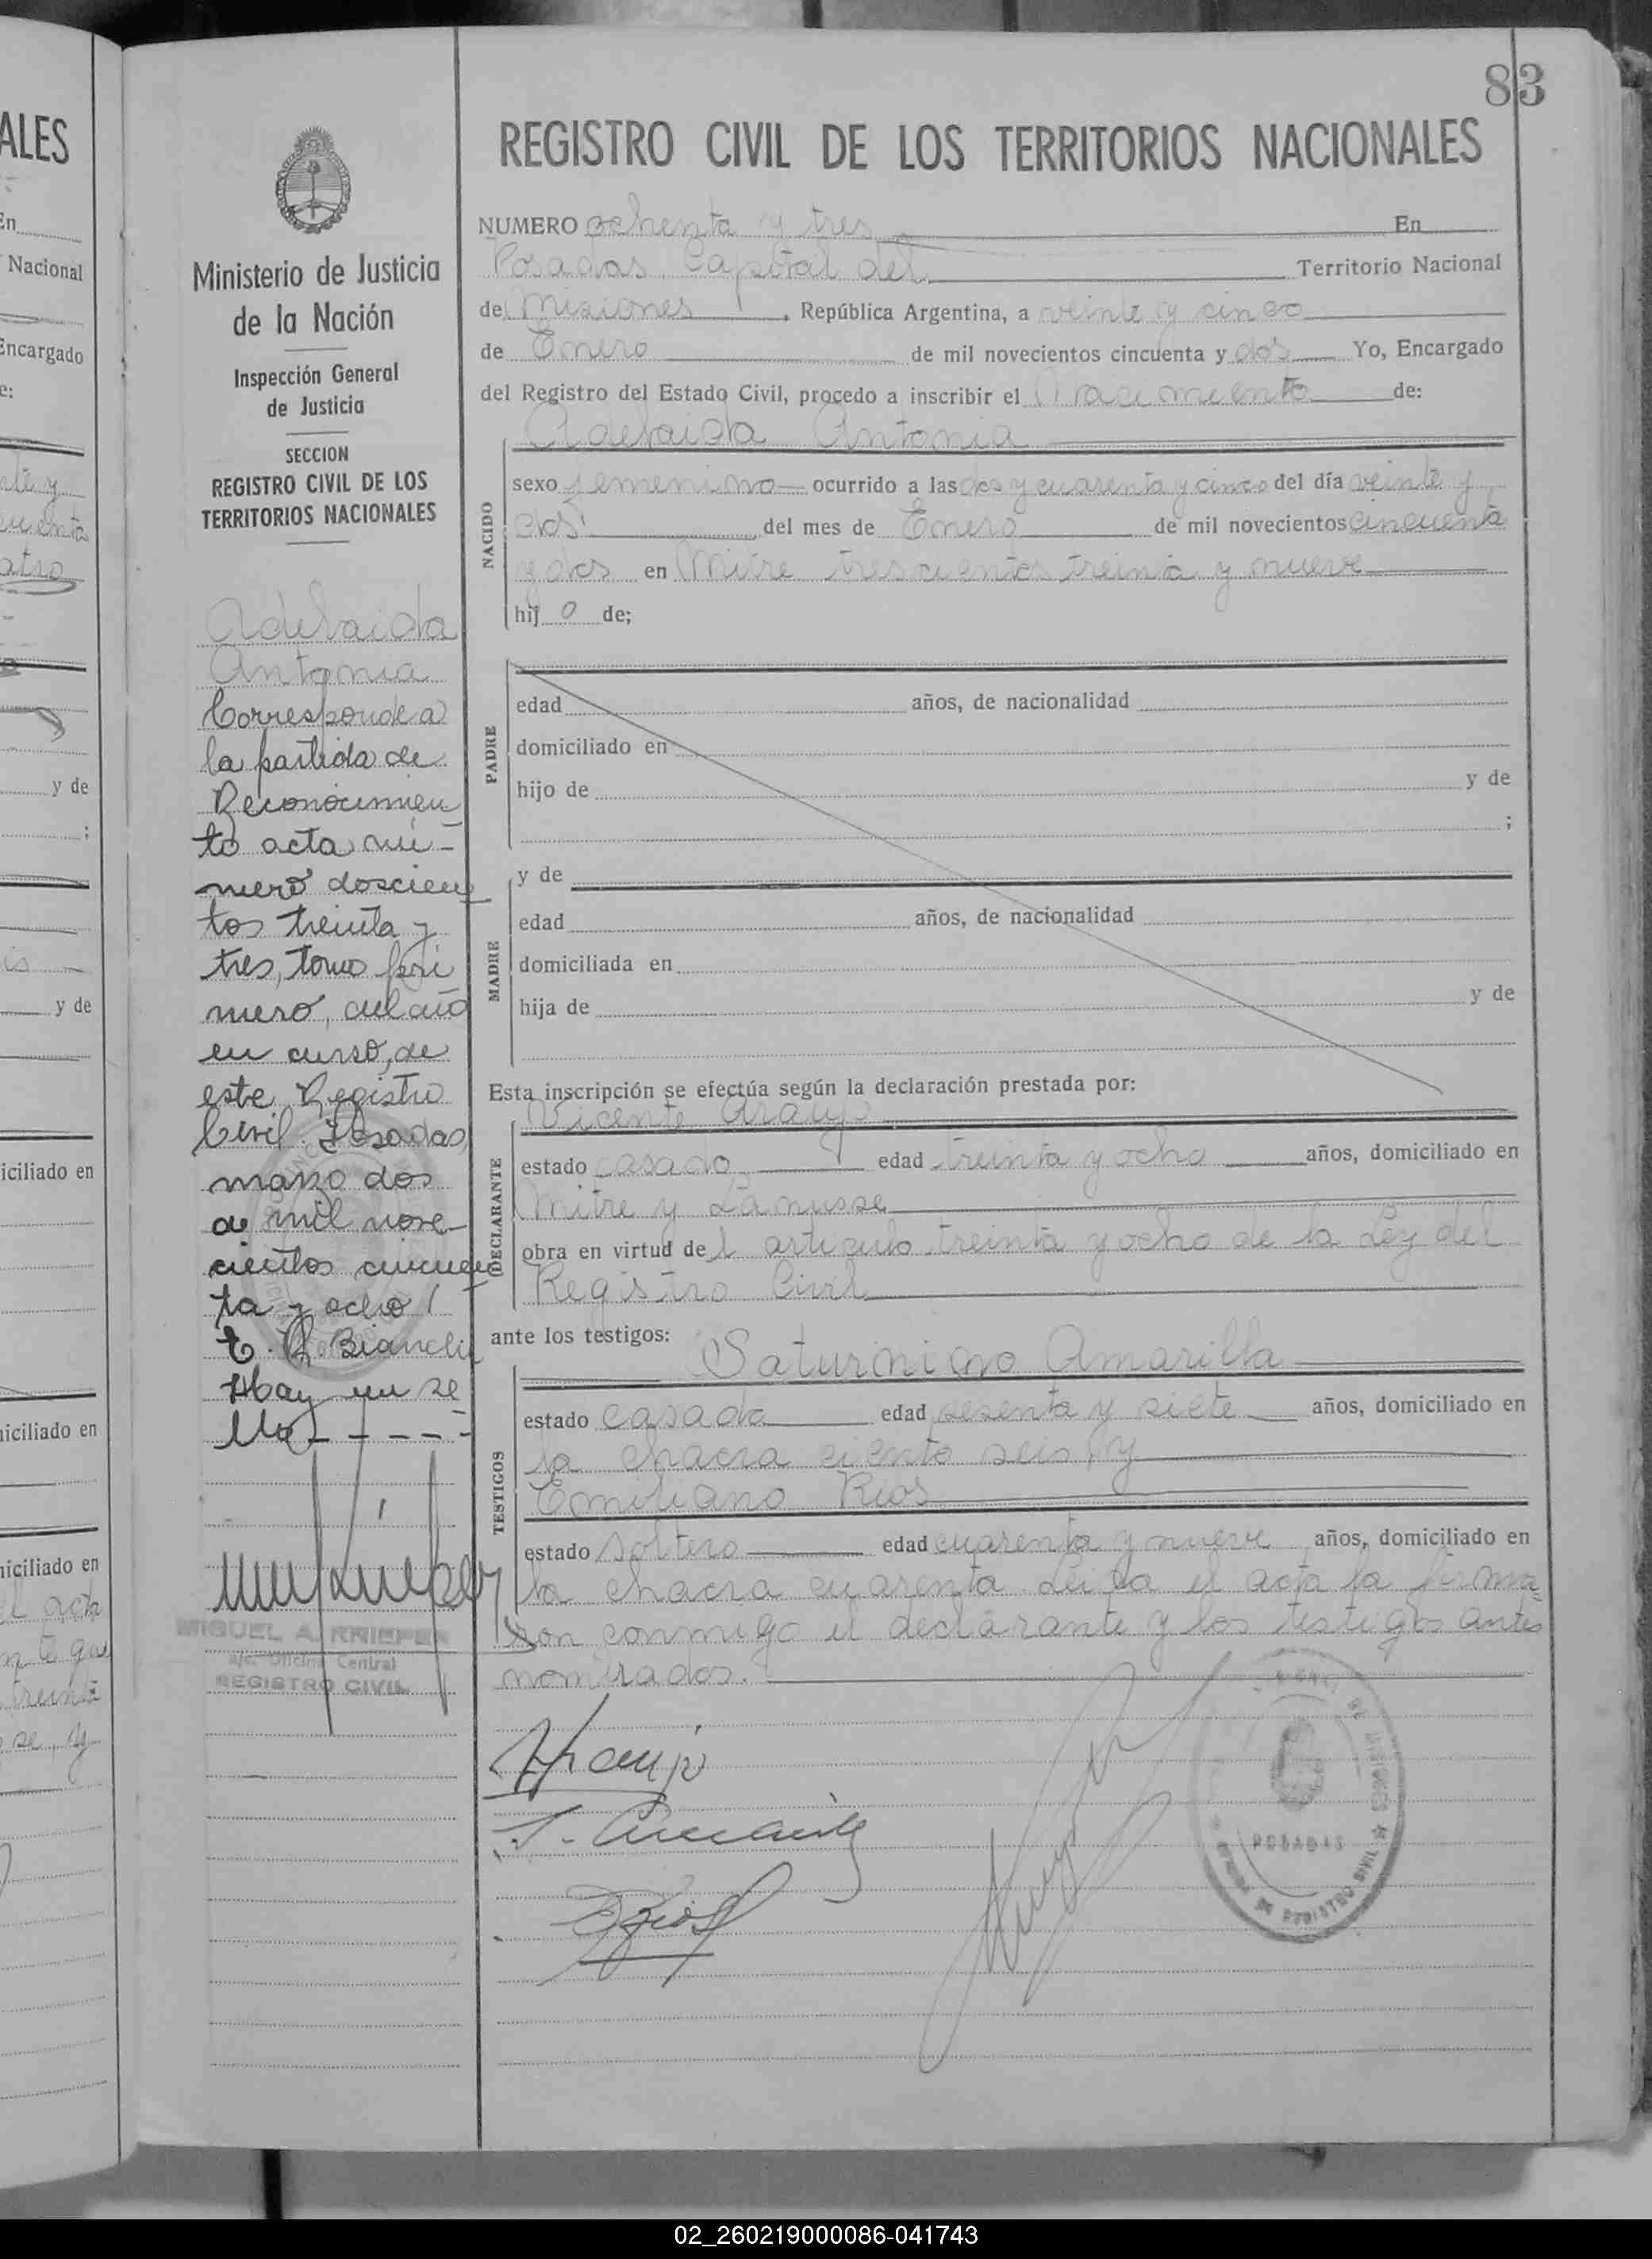 83
REGISTRO CIVIL DE LOS TERRITORIOS NACIONALES
Ministerio de Justicia
de la Nación
Inspección General
de Justicia
SECCION
REGISTRO CIVIL DE LOS
TERRITORIOS NACIONALES
Adelaida
Antonia
Corresponde a
la partida de
Reconocimien
to acta nú-
mero doscien
tos treinta y
tres, tomo pri
mero, del año
en curso, de
este Registro
Civil. Posadas,
marzo dos
de mil nove-
cientos cincuen
ta y ocho
E. R. Bianchi
Hay un se
llo
MIGUEL A. KRIEFER
a/c. Oficina Central
REGISTRO CIVIL
NUMERO ochenta y tres En
Posadas Capital del Territorio Nacional
de Misiones, República Argentina, a veinte y cinco
de Enero de mil novecientos cincuenta y dos Yo, Encargado
del Registro del Estado Civil, procedo a inscribir el nacimiento de:
Adelaida Antonia
NACIDO
sexo femenino ocurrido a las dos y cuarenta y cinco del día veinte y
dos del mes de Enero de mil novecientos cincuenta
y dos en Mitre trescientos treinta y nueve
hij a de;
PADRE
edad años, de nacionalidad
domiciliado en
hijo de y de
;
y de
MADRE
edad años, de nacionalidad
domiciliada en
hija de y de
Esta inscripción se efectúa según la declaración prestada por:
Vicente Araujo
DECLARANTE
estado casado edad treinta y ocho años, domiciliado en
Mitre y Lanusse
obra en virtud del articulo treinta y ocho de la Ley del
Registro Civil
ante los testigos:
Saturnino Amarilla
TESTIGOS
estado casado edad sesenta y siete años, domiciliado en
la chacra ciento seis, y
Emiliano Rios
estado soltero edad cuarenta y nueve años, domiciliado en
la chacra cuarenta. Leida el acta la firma-
ron conmigo el declarante y los testigos antes
nombrados.
Araujo
POSADAS
REGISTRO CIVIL
02_260219000086-041743